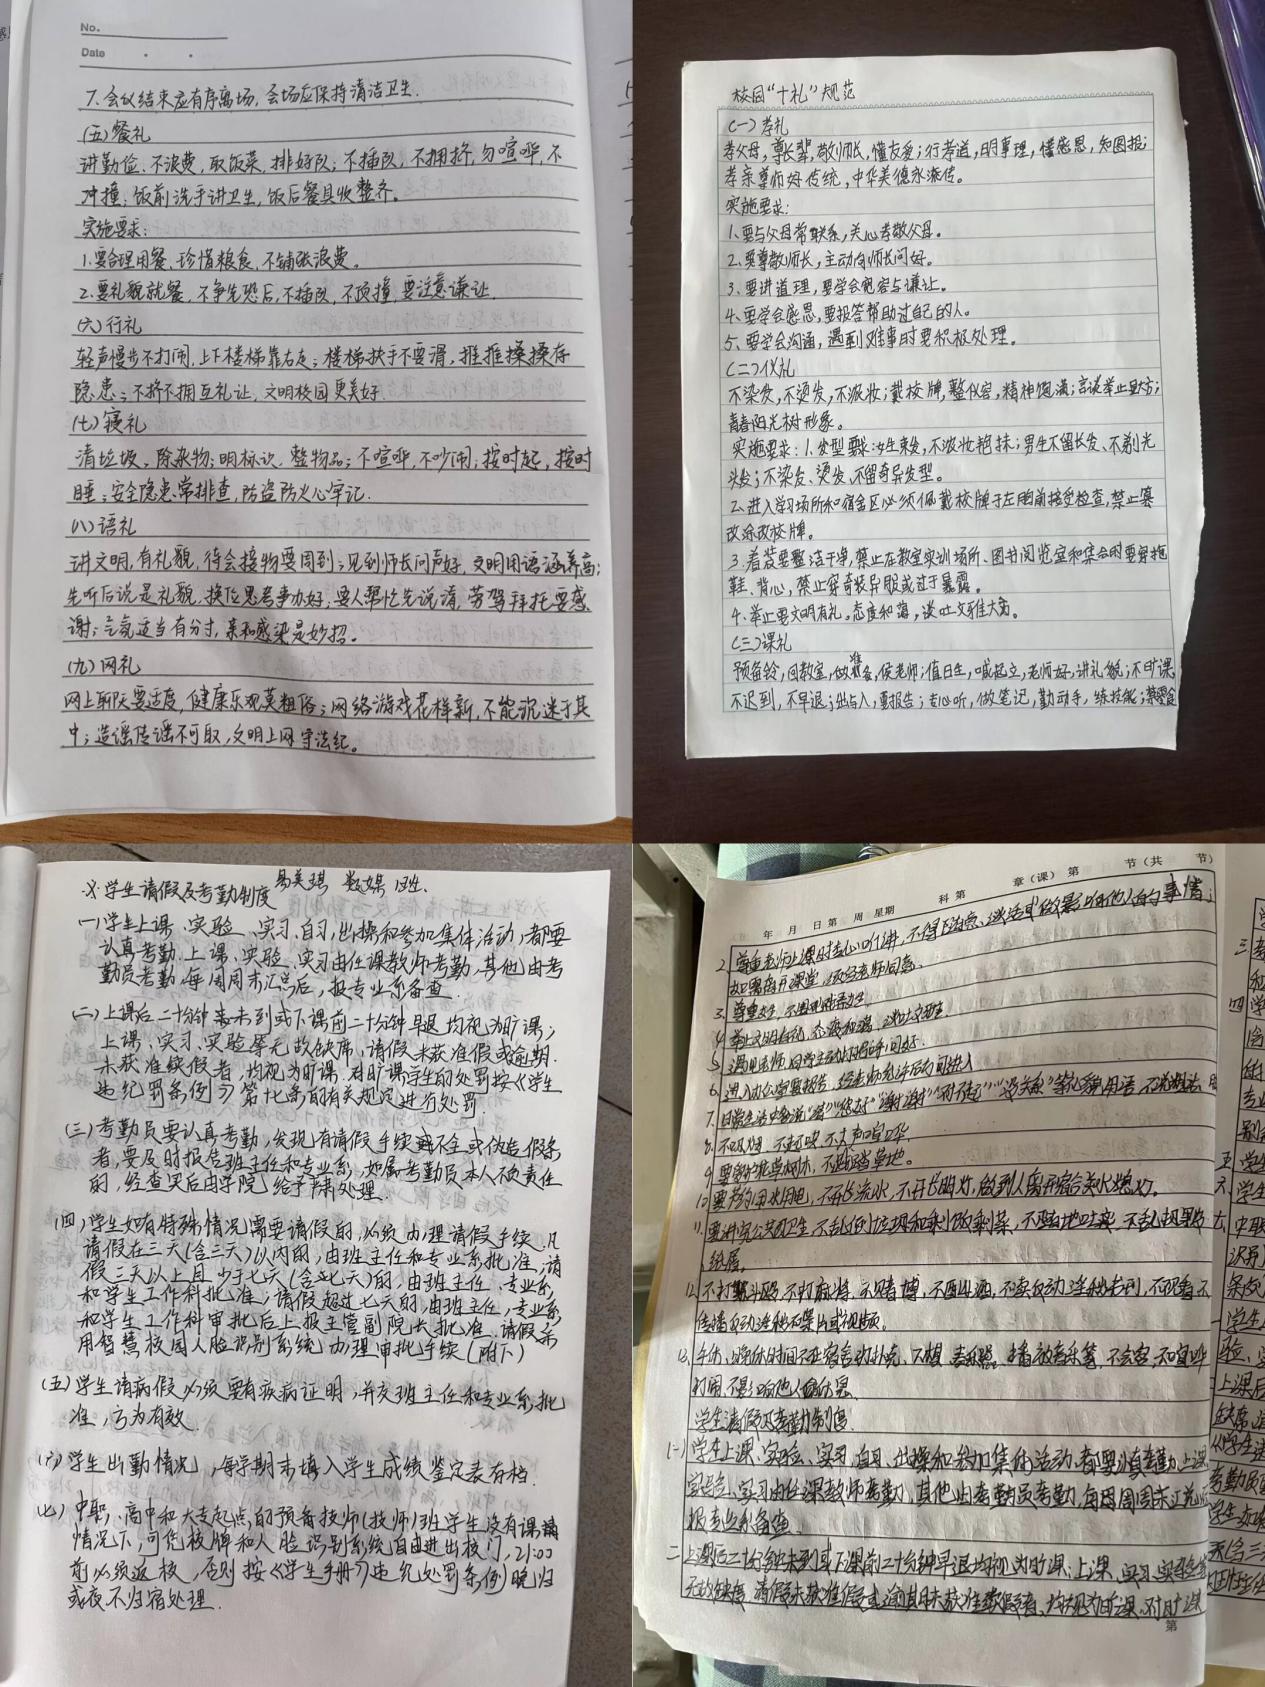 No.
Date
7.会议结束应有序离场,会场应保持清洁卫生.
(五)餐礼
讲勤俭、不浪费,取饭菜,排好队;不插队,不拥挤,勿喧哗,不
冲撞;饭前洗手讲卫生,饭后餐具收整齐。
实施要求:
1.要合理用餐、珍惜粮食,不铺张浪费。
2.要礼貌就餐,不争先恐后,不插队,不顶撞,要注意谦让.
(六)行礼
轻声慢步不打闹,上下楼梯靠右走;楼梯扶手不要滑,推推搡搡存
隐患;不挤不拥互礼让,文明校园更美好
(七)寝礼
清垃圾,除杂物;明标识,整物品;不喧哗,不吵闹;按时起,按时
睡;安全隐患常排查,防盗防火心牢记.
(八)语礼
讲文明,有礼貌,待会接物要周到;见到师长问声好,文明用语涵养高;
先听后说是礼貌,换位思考事办好,要人帮忙先说请,劳驾拜托要感
谢;言氛适当有分寸,亲和感染是妙招.
(九)网礼
网上聊天要适度,健康乐观莫粗俗;网络游戏花样新,不能沉迷于其
中;造谣传谣不可取,文明上网守法纪。
校园“十礼”规范
(一)孝礼
孝父母,尊长辈,敬师长,懂友爱;行孝道,明事理,懂感恩,知图报;
孝亲尊师好传统,中华美德永流传。
实施要求:
1.要与父母常联系,关心孝敬父母。
2.要尊敬师长,主动向师长问好。
3.要讲道理,要学会宽容与谦让。
4.要学会感恩,要报答帮助过自己的人。
5、要学会沟通,遇到难事时要积极处理。
(二)仪礼
不染发,不烫发,不浓妆;戴校牌,整仪容,精神饱满;言谈举止要大方;
青春阳光树形象。
实施要求:1.发型要求:女生束发,不浓妆艳抹;男生不留长发、不剃光
头发;不染发、烫发、不留奇异发型。
2.进入学习场所和宿舍区必须佩戴校牌于左胸前接受检查,禁止篡
改涂改校牌。
3.着装要整洁干净,禁止在教室实训场所、图书阅览室和集会时要穿拖
鞋、背心,禁止穿奇装异服或过于暴露。
4、举止要文明有礼,态度和蔼,谈吐文雅大方。
(三)课礼
预备铃,回教室,做准备,侯老师;值日生,喊起立,老师好,讲礼貌;不旷课
不迟到,不早退;出与入,要报告;专心听,做笔记,勤动手,练技能;禁零食
学生请假及考勤制度 易美琪 数媒1班.
(一)学生上课、实验、实习,自习,出操和参加集体活动,都要
认真考勤.上课、实验、实习由任课教师考勤,其他由考
勤员考勤,每周周末汇总后,报专业系备查.
(二)上课后二十分钟未到或下课前二十分钟早退均视为旷课;
上课、实习、实验等无故缺席,请假未获准假或逾期.
未获准续假者,均视为旷课,对旷课学生的处罚按《学生
违纪罚条例》第十七条的有关规定进行处罚.
(三)考勤员要认真考勤,发现有请假手续不全或伪造假条
者,要及时报告班主任和专业系,如属考勤员本人不负责任
的,经查实后由学院给予严肃处理.
(四)学生如有特殊情况需要请假的,必须办理请假手续.凡
请假在三天(含三天)以内的,由班主任和专业系批准;请
假三天以上且少于七天(含七天)的,由班主任、专业系
和学生工作科批准;请假超过七天的,由班主任,专业系
和学生工作科审批后上报主管副院长批准.请假条
用智慧校园人脸识别系统办理审批手续(附下)
(五)学生请病假,必须要有疾病证明,并交班主任和专业系,批
准,方为有效.
(六)学生出勤情况,每学期末填入学生成绩鉴定表存档.
七)中职、高中和大专起点的预备技师(技师)班学生没有课
情况下,可凭校牌和人脸识别系统自由进出校门,21:00
前必须返校,否则按《学生手册》违纪处罚条例》晚归
或夜不归宿处理.
年 月 日第 周 星期 科第 章(课)第 节(共 节)
2.尊重老师上课时专心听讲,不得吃零食、谈话或做影响他人的事情;
如需离开课堂,须经老师同意.
3.尊重女生,不
4.举止文明自然,态度和蔼,谈吐文雅
5.遇见老师,同学主动打招呼问好.
6.进入办公室要报告,经老师允许后方可进入
7.日常生活中多说“请”“您好”“谢谢”“对不起”“没关系”等礼貌用语,不说粗话、脏
8.不吸烟,不打架,不大声喧哗.
9.要爱护花草树木,不践踏草地。
10要节约用水用电,不开长流水,不开长明灯,做到人离开宿舍关水熄灯.
11.要讲究公共卫生,不乱倒垃圾和剩饭剩菜,不随地吐痰,不乱扔果皮
纸屑。
12.不打架斗殴,不打麻将,不赌博,不酗酒,不读反动淫秽书刊,不观看、不
传播反动淫秽影片或视频。
13.午休、晚休时间不在宿舍打扑克、下棋,奏乐器.播放音乐等,不会客,不喧哗
打闹,不影响他人休息.
学生请假及考勤制度
(一)学生上课、实验、实习、自习、出操和参加集体活动,都要认真考勤,上课
实验、实习由任课教师考勤,其他由考勤员考勤,每周周末汇总后
报专业系备查.
二上课后二十分钟未到或下课前二十分钟早退均视为旷课;上课、实习、实验等
无故缺席,请假未获准假或逾期未获准续假者,均视为旷课,对旷课
第